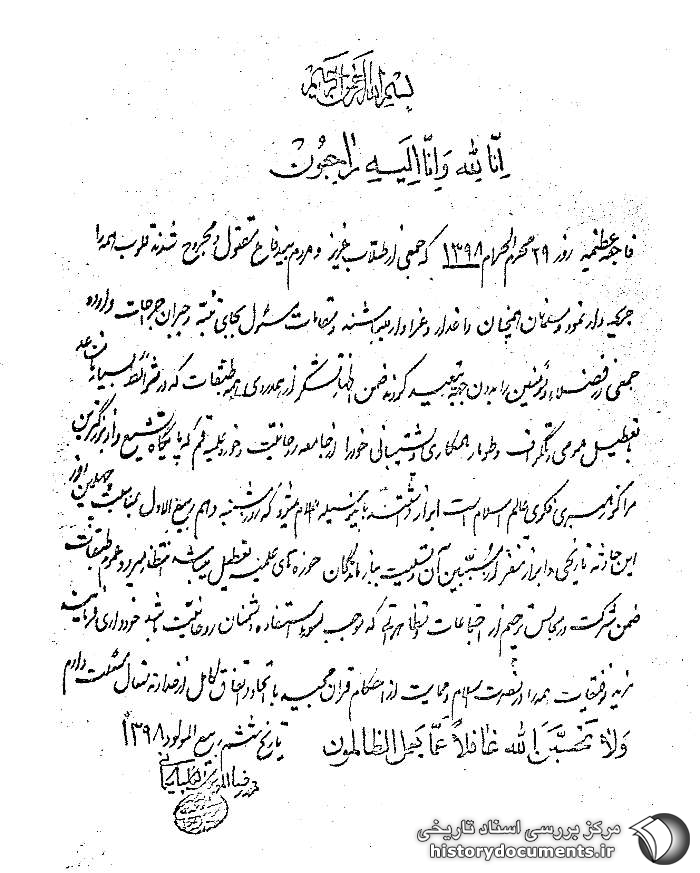 بسم الله الرحمن الرحیم
انّا لله وانّا الیه راجعون
فاجعه عظیمه روز ۲۹ محرم الحرام ۱۳۹۸ که جمعی از طلاب عزیز و مردم بیدفاع مقتول و مجروح شدند قلوب همه را
جریحه دار نمود و مسلمانان همچنان داغدار و عزادار میباشند و مقامات مسئول بجای تنبه و جبران جراحات وارده
جمعی از فضلاء و مؤمنین را بدون جهت تبعید کردند ضمن اظهار تشکر از همدردی همه طبقات که در شرائط
با تعطیل عمومی و تلگراف و طومار همکاری و پشتیبانی خود را از جامعه روحانیت و حوزه علمیه قم که پایگاه تشیع و از بزرگترین
مراکز رهبری فکری عالم اسلام است ابراز داشتند باینوسیله اعلام میشود که روز شنبه دهم ربیع الاول بمناسبت چهلمین روز
این حادثه تاریخی و ابراز تنفر از مسببین آن و تسلیت ببازماندگان حوزه های علمیه تعطیل میباشد انتظار میرود عموم طبقات
ضمن شرکت در مجالس ترحیم از اجتماعات و تظاهراتی که موجب سوء استفاده دشمنان روحانیت باشد خودداری فرمایند
مزید توفیقات همه را در نصرت اسلام و حمایت از احکام قرآن مجید با اتحاد و اتفاق کامل از خداوند متعال مسئلت دارم
ولا تحسبنّ الله غافلاً عمّا یعمل الظالمون
تاریخ ششم ربیع المولود ۱۳۹۸
محمد رضا الموسوی الگلپایگانی
مرکز بررسی اسناد تاریخی
historydocuments.ir